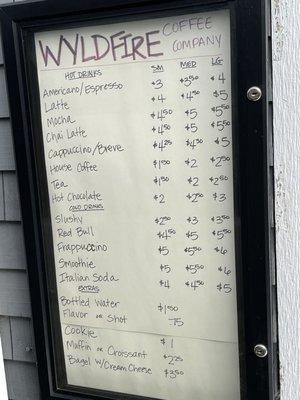 WYLDFIRE COFFEE COMPANY
HOT DRINKS SM MED LG
Americano/Espresso $3 $3⁵⁰ $4
Latte $4 $4⁵⁰ $5
Mocha $4⁵⁰ $5 $5⁵⁰
Chai Latte $4⁵⁰ $5 $5⁵⁰
Cappuccino/Breve $4²⁵ $4⁵⁰ $5
House Coffee $1⁵⁰ $2 $2⁵⁰
Tea $1⁵⁰ $2 $2⁵⁰
Hot Chocolate $2 $2⁵⁰ $3
COLD DRINKS
Slushy $2⁵⁰ $3 $3⁵⁰
Red Bull $4⁵⁰ $5 $5⁵⁰
Frappuccino $5 $5⁵⁰ $6
Smoothie $5 $5⁵⁰ $6
Italian Soda $4 $4⁵⁰ $5
EXTRAS
Bottled Water $1⁵⁰
Flavor or Shot .75
Cookie $1
Muffin or Croissant $2²⁵
Bagel w/Cream Cheese $3⁵⁰